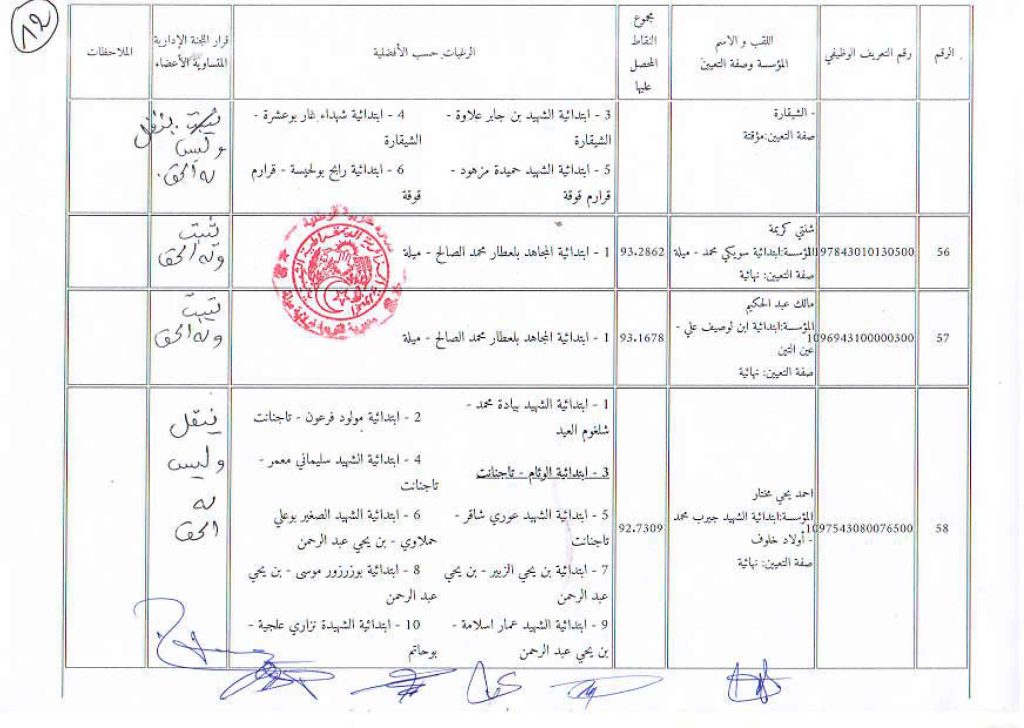 12
الرقم
رقم التعريف الوظيفي
اللقب و الاسم
المؤسسة وصفة التعيين
مجموع
النقاط
المحصل
عليها
الرغبات حسب الأفضلية
قرار اللجنة الإدارية
المتساوية الأعضاء
الملاحظات
- الشيقارة
صفة التعيين:مؤقتة
3 - ابتدائية الشهيد بن جابر علاوة -
الشيقارة
4 - ابتدائية شهداء غار بوعشرة -
الشيقارة
5 - ابتدائية الشهيد حميدة مزهود -
قرارم قوقة
6 - ابتدائية رابح بولحيسة - قرارم
قوقة
ينقل
وليس
له الحق.
56
97843010130500
شلي كريمة
المؤسسة:ابتدائية سويكي محمد - ميلة
صفة التعيين: نهائية
93.2862
1 - ابتدائية المجاهد بلعطار محمد الصالح - ميلة
تثبت
وله الحق
57
1096943100000300
مالك عبد الحكيم
المؤسسة:ابتدائية ابن لوصيف علي -
عين التين
صفة التعيين: نهائية
93.1678
1 - ابتدائية المجاهد بلعطار محمد الصالح - ميلة
يثبت
وله الحق
58
1097543080076500
احمد يحي مختار
المؤسسة:ابتدائية الشهيد جيرب محمد
- أولاد خلوف
صفة التعيين: نهائية
92.7309
1 - ابتدائية الشهيد بيادة محمد -
شلغوم العيد
2 - ابتدائية مولود فرعون - تاجنانت
3 - ابتدائية الوئام - تاجنانت
4 - ابتدائية الشهيد سليماني معمر -
تاجنانت
5 - ابتدائية الشهيد عوري شاقر -
تاجنانت
6 - ابتدائية الشهيد الصغير بوعلي
حملاوي - بن يحي عبد الرحمن
7 - ابتدائية بن يحي الزبير - بن يحي
عبد الرحمن
8 - ابتدائية بوزرزور موسى - بن يحي
عبد الرحمن
9 - ابتدائية الشهيد عمار اسلامة -
بن يحي عبد الرحمن
10 - ابتدائية الشهيدة نزاري علجية -
بوحاتم
ينقل
وليس
له
الحق